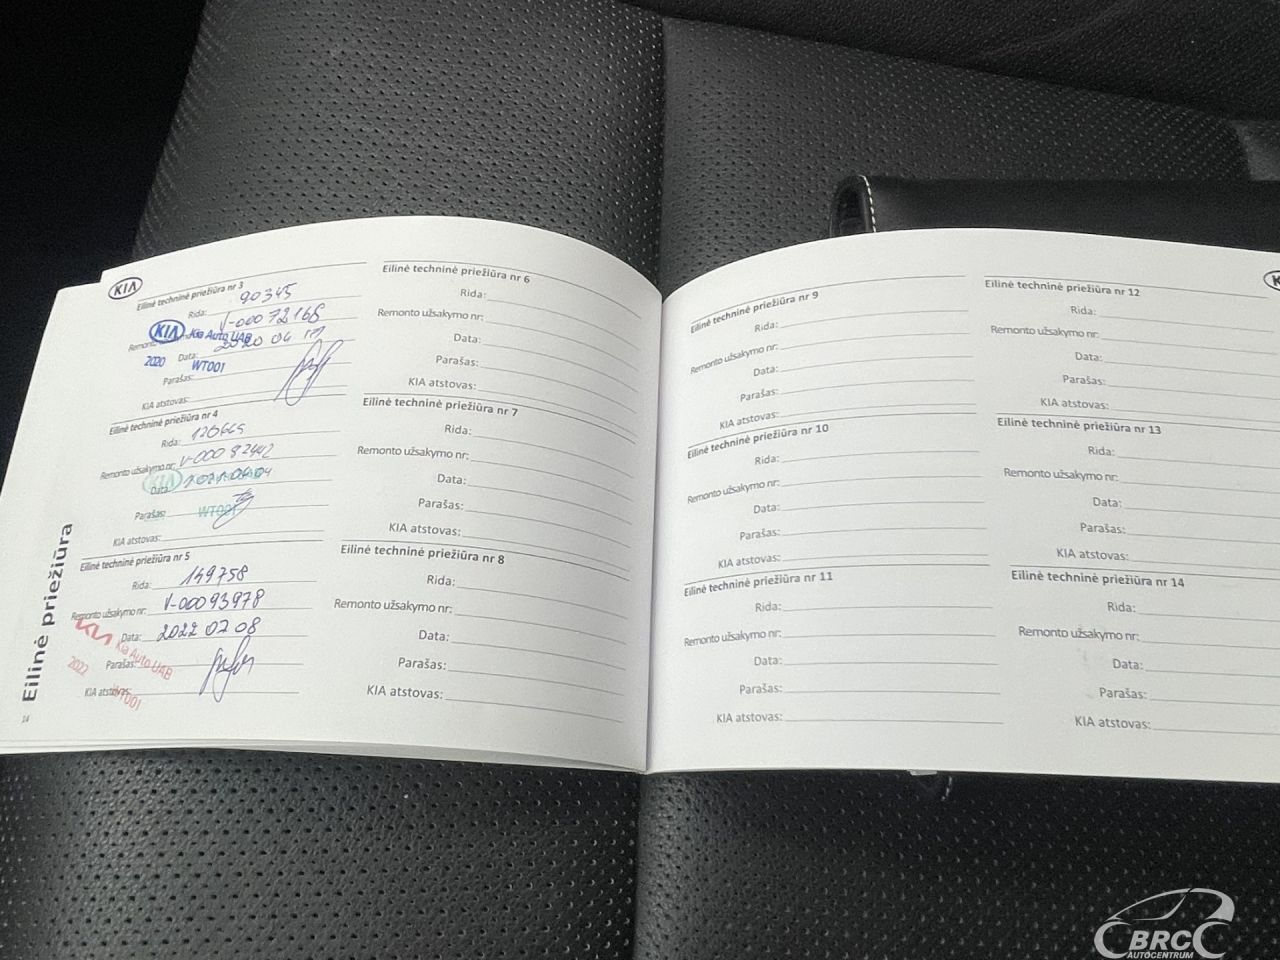 KIA
Eilinė techninė priežiūra nr 3
Rida: 90345
Remonto užsakymo nr: V-00072168
Data: 2020 04
Parašas:
KIA atstovas:
KIA Kia Auto UAB
2020 WT001
Eilinė techninė priežiūra nr 4
Rida: 120665
Remonto užsakymo nr: V-00082442
Data: 2021.06.04
Parašas:
KIA atstovas:
KIA
WT001
Eilinė techninė priežiūra nr 5
Rida: 149758
Remonto užsakymo nr: V-00093978
Data: 2022 07 08
Parašas:
KIA atstovas:
KIA Kia Auto UAB
2022 WT001
Eilinė priežiūra
14
Eilinė techninė priežiūra nr 6
Rida:
Remonto užsakymo nr:
Data:
Parašas:
KIA atstovas:
Eilinė techninė priežiūra nr 7
Rida:
Remonto užsakymo nr:
Data:
Parašas:
KIA atstovas:
Eilinė techninė priežiūra nr 8
Rida:
Remonto užsakymo nr:
Data:
Parašas:
KIA atstovas:
Eilinė techninė priežiūra nr 9
Rida:
Remonto užsakymo nr:
Data:
Parašas:
KIA atstovas:
Eilinė techninė priežiūra nr 10
Rida:
Remonto užsakymo nr:
Data:
Parašas:
KIA atstovas:
Eilinė techninė priežiūra nr 11
Rida:
Remonto užsakymo nr:
Data:
Parašas:
KIA atstovas:
Eilinė techninė priežiūra nr 12
Rida:
Remonto užsakymo nr:
Data:
Parašas:
KIA atstovas:
Eilinė techninė priežiūra nr 13
Rida:
Remonto užsakymo nr:
Data:
Parašas:
KIA atstovas:
Eilinė techninė priežiūra nr 14
Rida:
Remonto užsakymo nr:
Data:
Parašas:
KIA atstovas:
BRC
AUTOCENTRUM